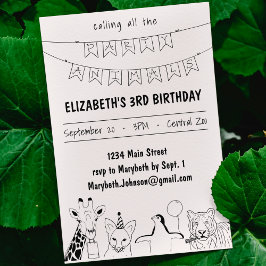 calling all the
PARTY
ANIMALS
ELIZABETH'S 3RD BIRTHDAY
September 20 - 3PM - Central Zoo
1234 Main Street
rsvp to Marybeth by Sept. 1
Marybeth.Johnson@gmail.com